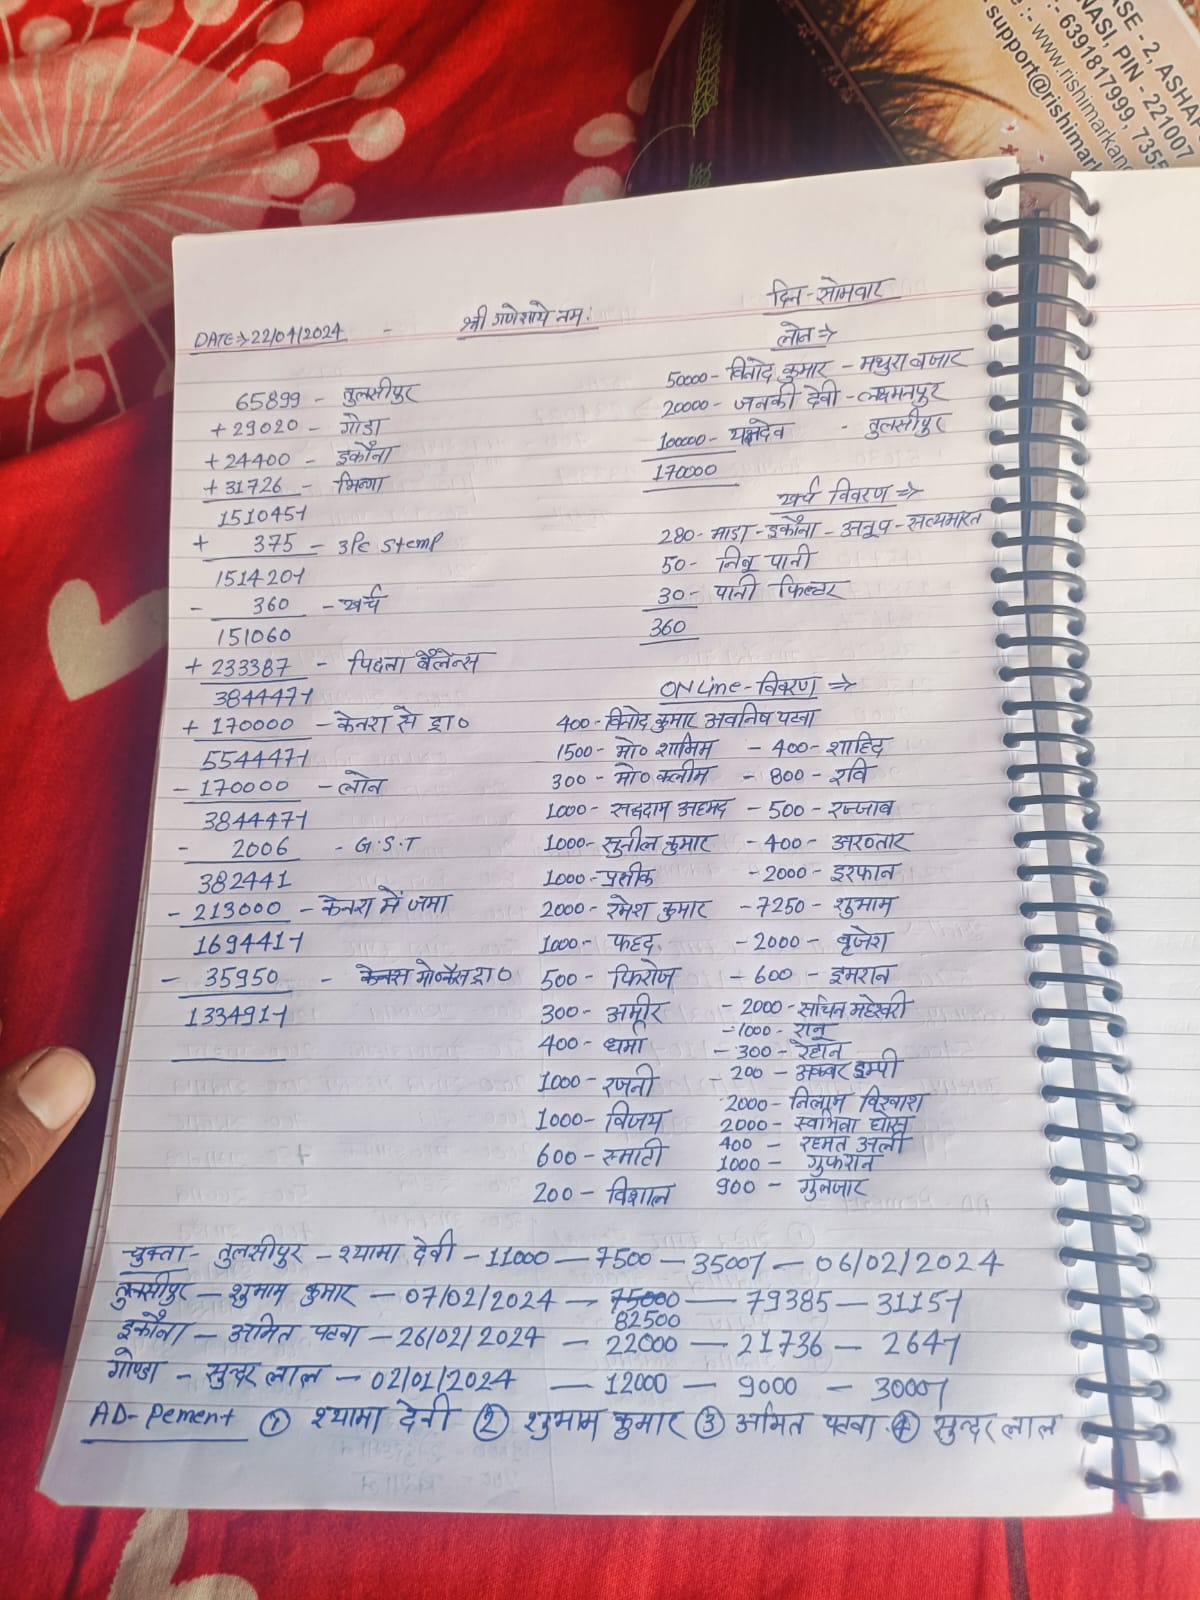 ASE - 2, ASHAP
NASI, PIN - 221007
:- 6391817999, 7355
:- www.rishimarkan
support@rishimark
दिन - सोमवार
DATE→22/04/2024 - श्री गणेशाये नम:
लोन ⇒
50000 - विनोद कुमार - मथुरा बजार
20000 - जनकी देवी - लक्ष्मनपुर
100000 - यज्ञदेव - तुलसीपुर
170000
खर्च विवरण ⇒
280 - भाडा - इकौना - अनूप - सत्यभारत
50 - निबू पानी
30 - पानी फिल्टर
360
65899 - तुलसीपुर
+29020 - गोडा
+24400 - इकौना
+31726 - भिन्गा
151045/-
+ 375 - 3Pc Stemp
151420/-
- 360 - खर्च
151060
+ 233387 - पिछला बैलेन्स
384447/-
+ 170000 - केनरा से ड्रा०
554447/-
- 170000 - लोन
384447/-
- 2006 - G.S.T
382441
- 213000 - केनरा में जमा
169441/-
- 35950 - केनरा मो०कैस ड्रा०
133491/-
ONLine - विवरण ⇒
400 - विनोद कुमार अवनिष पटवा
1500 - मो० शामिम - 400 - शाहिद
300 - मो० कलीम - 800 - रवि
1000 - सद्दाम अहमद - 500 - रज्जाब
1000 - सुनील कुमार - 400 - अख्तार
1000 - प्रतीक - 2000 - इरफान
2000 - रमेश कुमार - 7250 - शुभाम
1000 - फहद - 2000 - बृजेश
500 - फिरोज - 600 - इमरान
300 - अमीर - 2000 - सचिन महेश्वरी
- 1000 - रानू
400 - धर्मा - 300 - रेहान
200 - अकबर इम्पी
1000 - रजनी
2000 - निलाम विश्वाश
1000 - विजय 2000 - स्वामिता घोस
400 - रहमत अली
600 - स्माटी 1000 - गुफरान
200 - विशाल 900 - गुलजार
चुक्ता - तुलसीपुर - श्यामा देवी - 11000 - 7500 - 3500/- - 06/02/2024
तुलसीपुर - शुभाम कुमार - 07/02/2024 - 75000 - 79385 - 3115/-
82500
इकौना - अमित पटवा - 26/02/2024 - 22000 - 21736 - 264/-
गोण्डा - सुन्दर लाल - 02/01/2024 - 12000 - 9000 - 3000/-
AD - Pement ① श्यामा देवी ② शुभाम कुमार ③ अमित पटवा ④ सुन्दर लाल